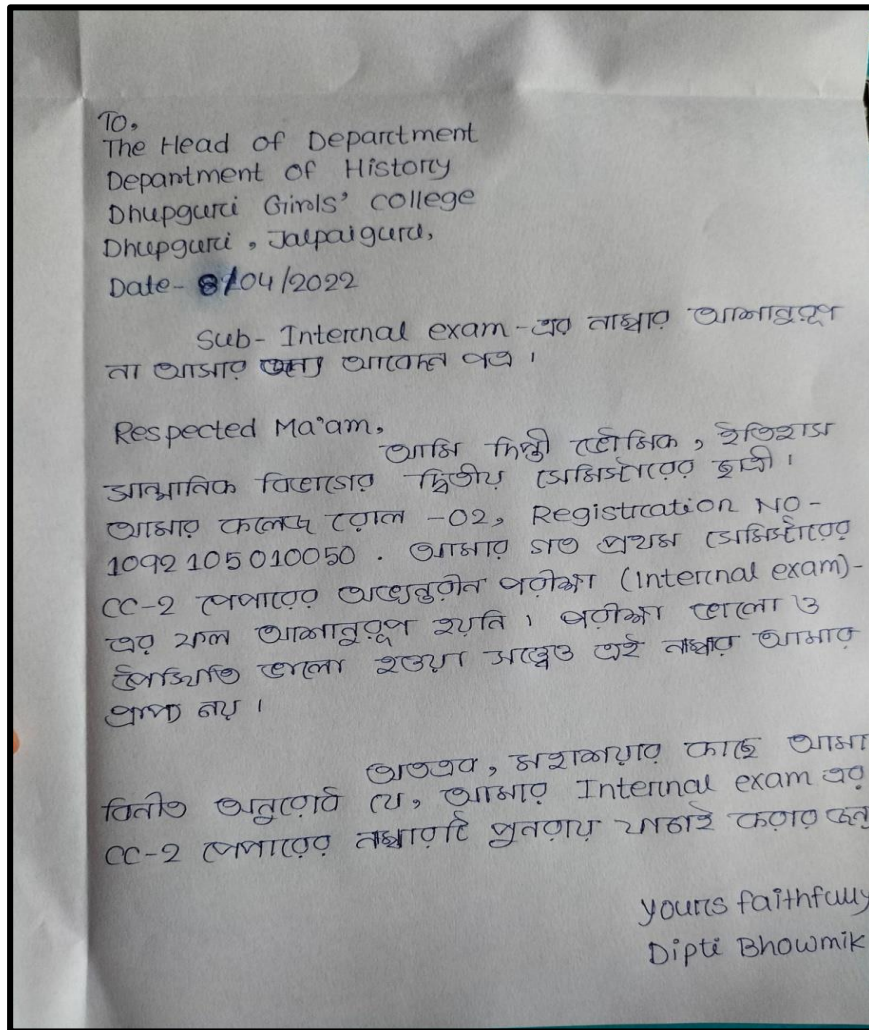 To,
The Head of Department
Department of History
Dhupguri Girls' College
Dhupguri, Jalpaiguri,
Date- 8/04/2022
Sub- Internal exam-এর নাম্বার আশানুরূপ
না আসার জন্য আবেদন পত্র।
Respected Ma'am,
আমি দিপ্তী ভৌমিক, ইতিহাস
সাম্মানিক বিভাগের দ্বিতীয় সেমিস্টারের ছাত্রী।
আমার কলেজ রোল -02, Registration NO-
1092105010050. আমার গত প্রথম সেমিস্টারের
CC-2 পেপারের অভ্যন্তরীন পরীক্ষা (Internal exam)-
এর ফল আশানুরূপ হয়নি। পরীক্ষা ভালো ও
উপস্থিতি ভালো হওয়া সত্ত্বেও এই নাম্বার আমার
প্রাপ্য নয়।
অতএব, মহাশয়ার কাছে আমা
বিনীত অনুরোধ যে, আমার Internal exam এর
CC-2 পেপারের নাম্বারটি পুনরায় যাচাই করার জন্য
yours faithfully
Dipti Bhowmik